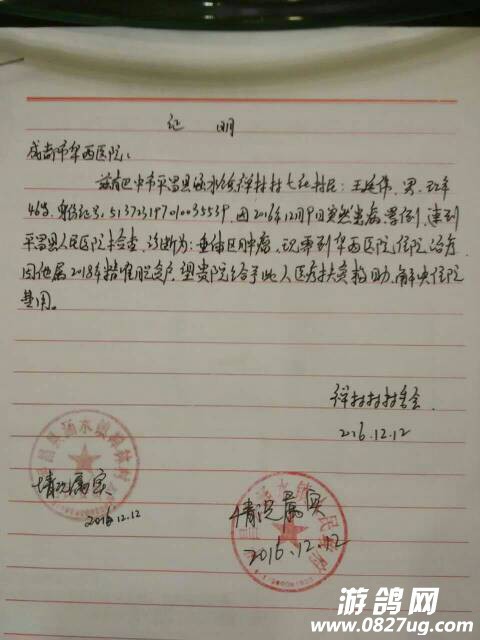 证 明
成都市华西医院：
兹有巴中市平昌县涵水镇祥村村七社村民：王延伟，男，现年
46岁，身份证号：513723197010035539，因2016年12月9日突然发病，晕倒，送到
平昌县人民医院检查，诊断为：垂体区肿瘤，现来到华西医院住院治疗
因他属2018年精准脱贫户，望贵院给予此人医疗扶贫救助，解决住院
费用。
村村委会
2016.12.12
情况属实
2016.12.12
情况属实
2016.12.12
游鸽网
www.0827ug.com